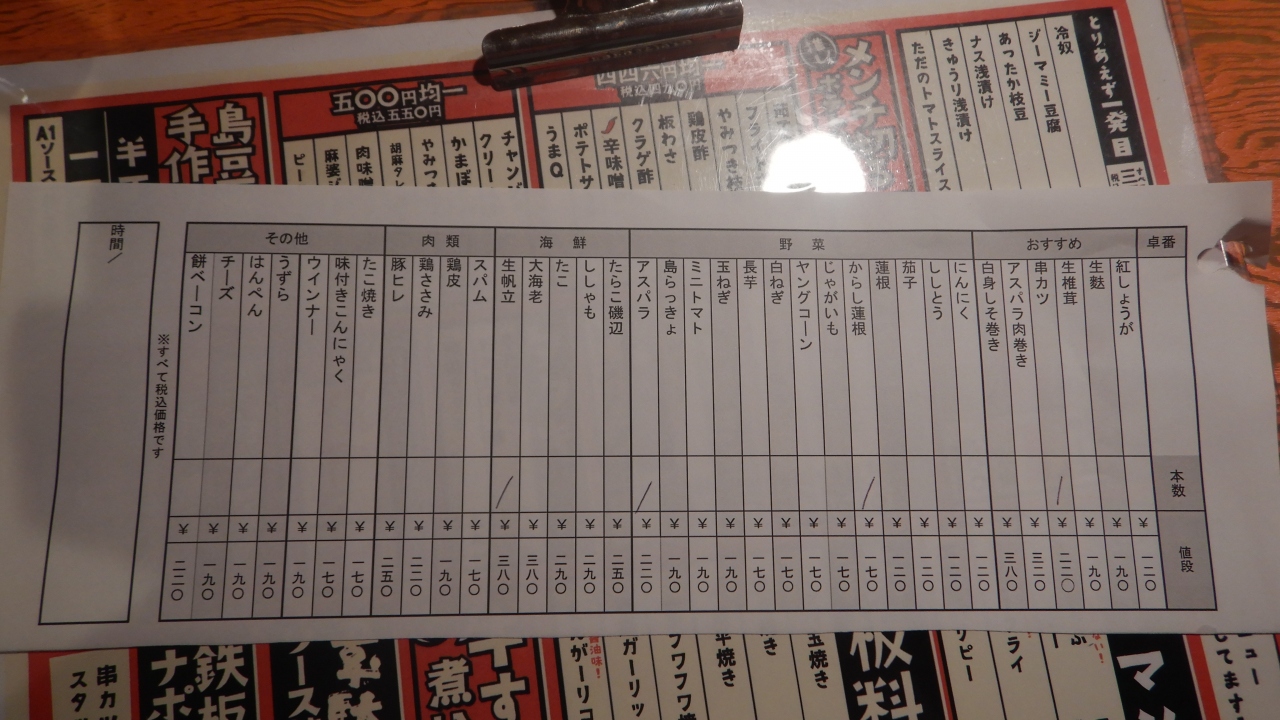 とりあえず一発目
冷奴
ジーマミー豆腐
あったか枝豆
ナス浅漬け
きゅうり浅漬け
ただのトマトスライス
メンチ
四四六円均一
やみつき枝
鶏皮酢
板わさ
クラゲ酢
辛味噌
ポテトサ
うまQ
五〇〇円均一
税込五五〇円
チャン
クリー
かまぼ
やみつ
胡麻タレ
肉味噌
麻婆
ピー
島豆
手作
半
一
A1ソース
卓番
本数
値段
おすすめ
紅しょうが ¥一二〇
生麩 ¥一九〇
生椎茸 / ¥一九〇
串カツ ¥二二〇
アスパラ肉巻き ¥三二〇
白身しそ巻き ¥三八〇
野菜
にんにく ¥一二〇
ししとう ¥一二〇
茄子 ¥一二〇
蓮根 ¥一二〇
からし蓮根 / ¥一七〇
じゃがいも ¥一七〇
ヤングコーン ¥一七〇
白ねぎ ¥一七〇
長芋 ¥一七〇
玉ねぎ ¥一九〇
ミニトマト ¥一九〇
島らっきょ ¥一九〇
アスパラ / ¥二二〇
海鮮
たらこ磯辺 ¥二五〇
ししゃも ¥一九〇
たこ ¥一九〇
大海老 ¥三八〇
生帆立 / ¥三八〇
肉類
スパム ¥一七〇
鶏皮 ¥一九〇
鶏ささみ ¥二二〇
豚ヒレ ¥二五〇
その他
たこ焼き ¥一七〇
味付きこんにゃく ¥一七〇
ウインナー ¥一九〇
うずら ¥一九〇
はんぺん ¥一九〇
チーズ ¥一九〇
餅ベーコン ¥二二〇
※すべて税込価格です
時間/
ュー
してます
マ
ライ
リピー
板料
玉焼き
き
平焼き
フワフワ
ガーリッ
がガーリ
煮
鉄板
ナポ
串カ
スタ